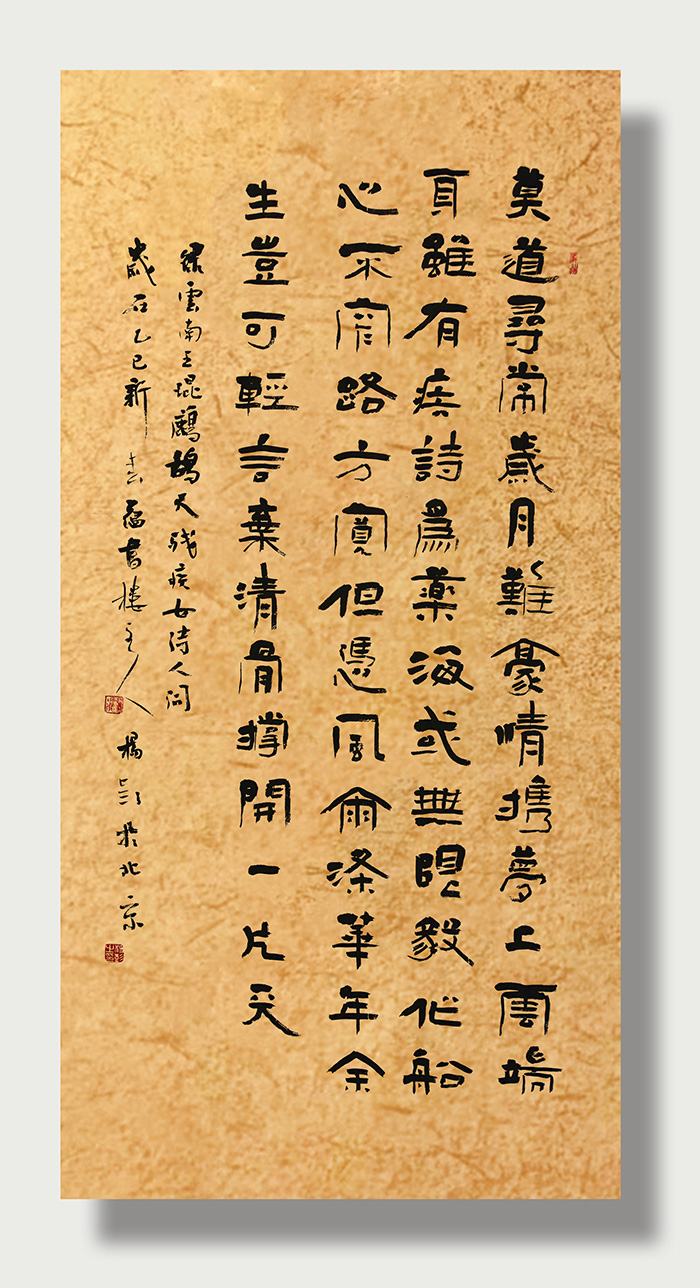 莫道尋常歲月難豪情攜夢上雲端
身雖有疾詩爲藥海或無限毅作船
心不窄路方寬但憑風雨滌華年余
生豈可輕言棄清骨撐開一片天
錄雲南王琨鷓鴣天殘疾女詩人問
歲在乙巳新福書樓主人楊於北京